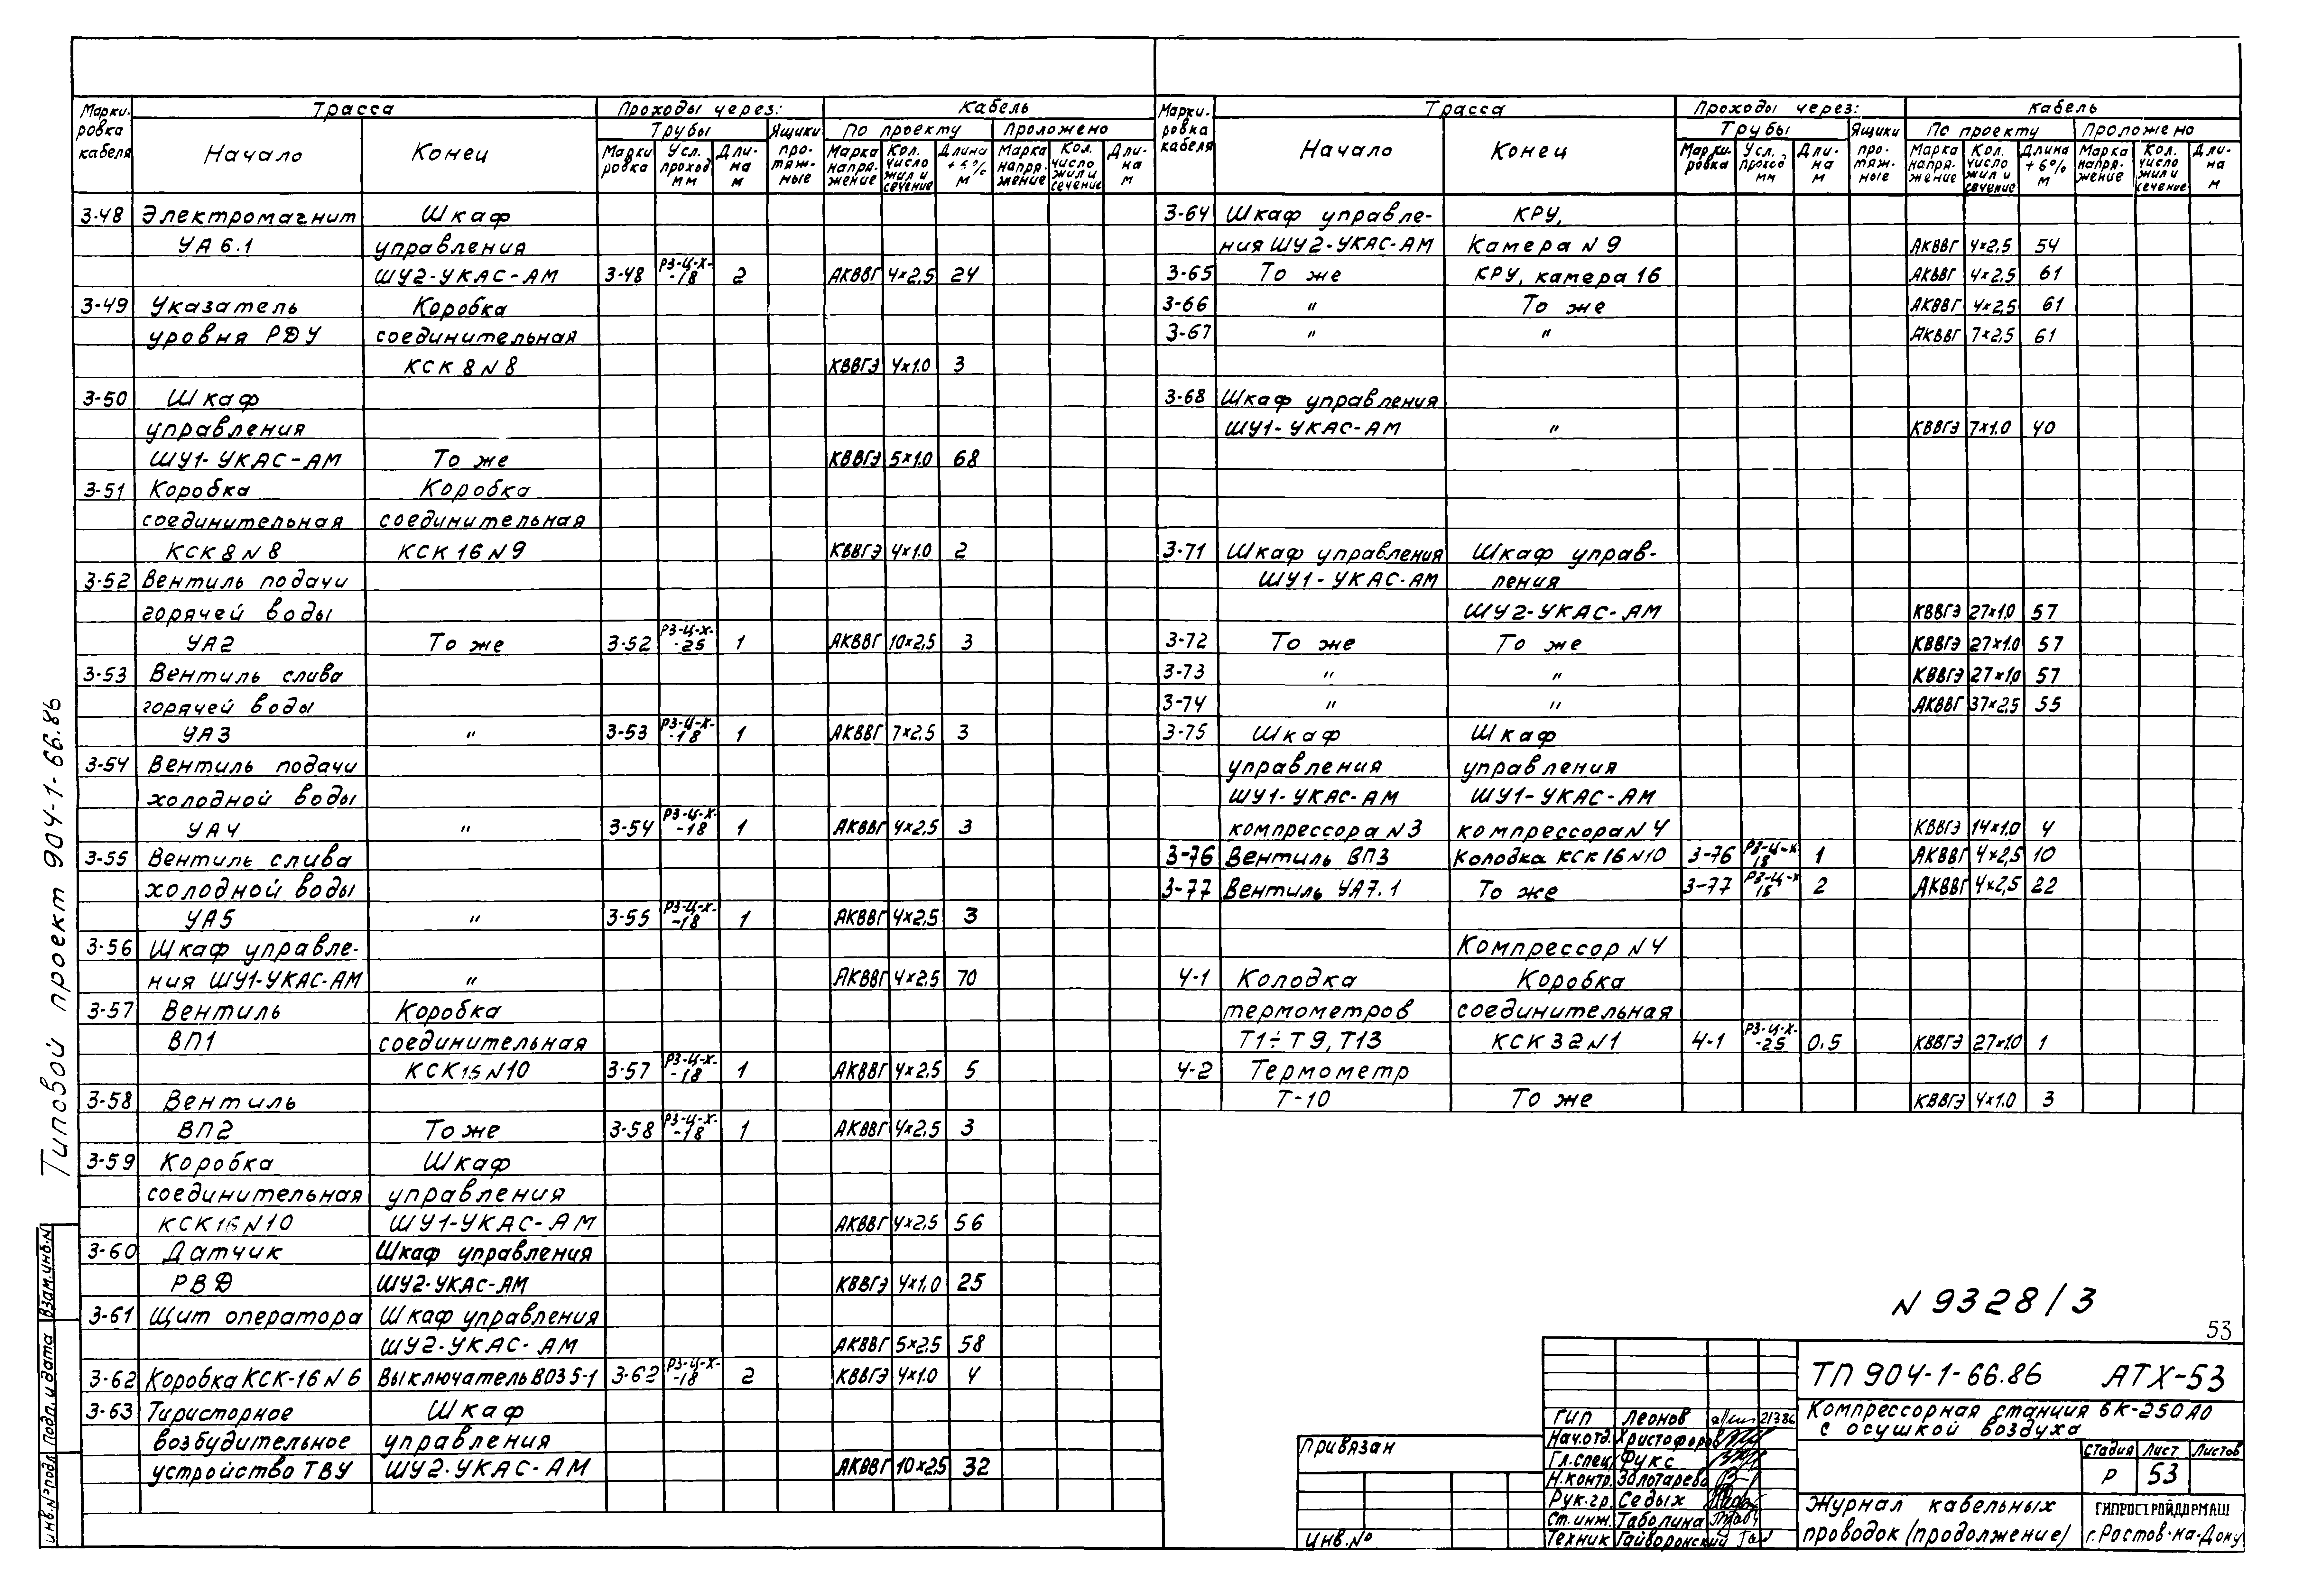 Типовой проект 904-1-66.86
Марки-ровка кабеля | Трасса | Проходы через: | Кабель
Начало | Конец | Трубы | Ящики про-тяж-ные | По проекту | Проложено
Марки ровка | Усл. проход мм | Дли-на м | Марка напря-жение | Кол. число жил и сечение | Длина +6% м | Марка напря-жение | Кол. число жил и сечение | Дли-на м
3-48 Электромагнит Шкаф
УА 6.1 управления
ШУ2-УКАС-АМ 3-48 РЗ-Ц-Х--18 2 АКВВГ 4×2,5 24
3-49 Указатель Коробка
уровня РДУ соединительная
КСК 8 N 8 КВВГЭ 4×1.0 3
3-50 Шкаф
управления
ШУ1-УКАС-АМ То же КВВГЭ 5×1.0 68
3-51 Коробка Коробка
соединительная соединительная
КСК 8 N 8 КСК 16 N 9 КВВГЭ 4×1.0 2
3-52 Вентиль подачи
горячей воды
УА2 То же 3-52 РЗ-Ц-Х--25 1 АКВВГ 10×2,5 3
3-53 Вентиль слива
горячей воды
УА3 " 3-53 РЗ-Ц-Х--18 1 АКВВГ 7×2,5 3
3-54 Вентиль подачи
холодной воды
УА4 " 3-54 РЗ-Ц-Х--18 1 АКВВГ 4×2,5 3
3-55 Вентиль слива
холодной воды
УА5 " 3-55 РЗ-Ц-Х--18 1 АКВВГ 4×2,5 3
3-56 Шкаф управле-
ния ШУ1-УКАС-АМ " АКВВГ 4×2,5 70
3-57 Вентиль Коробка
ВП1 соединительная
КСК16 N 10 3-57 РЗ-Ц-Х--18 1 АКВВГ 4×2,5 5
3-58 Вентиль
ВП2 То же 3-58 РЗ-Ц-Х--18 1 АКВВГ 4×2,5 3
3-59 Коробка Шкаф
соединительная управления
КСК16 N 10 ШУ1-УКАС-АМ АКВВГ 4×2,5 56
3-60 Датчик Шкаф управления
РВД ШУ2-УКАС-АМ КВВГЭ 4×1,0 25
3-61 Щит оператора Шкаф управления
ШУ2-УКАС-АМ АКВВГ 5×2,5 58
3-62 Коробка КСК-16 N 6 Выключатель ВО35-1 3-62 РЗ-Ц-Х--18 2 КВВГЭ 4×1.0 4
3-63 Тиристорное Шкаф
возбудительное управления
устройство ТВУ ШУ2-УКАС-АМ АКВВГ 10×2,5 32
Марки-ровка кабеля | Трасса | Проходы через: | Кабель
Начало | Конец | Трубы | Ящики про-тяж-ные | По проекту | Проложено
Марки-ровка | Усл. проход мм | Дли-на м | Марка напря-жение | Кол. число жил и сечение | Длина +6% м | Марка напря-жение | Кол. число жил и сечение | Дли-на м
3-64 Шкаф управле- КРУ,
ния ШУ2-УКАС-АМ Камера N 9 АКВВГ 4×2,5 54
3-65 То же КРУ, камера 16 АКВВГ 4×2,5 61
3-66 " То же АКВВГ 4×2,5 61
3-67 " " АКВВГ 7×2,5 61
3-68 Шкаф управления
ШУ1-УКАС-АМ " КВВГЭ 7×1.0 40
3-71 Шкаф управления Шкаф управ-
ШУ1-УКАС-АМ ления
ШУ2-УКАС-АМ КВВГЭ 27×1.0 57
3-72 То же То же КВВГЭ 27×1.0 57
3-73 " " КВВГЭ 27×1,0 57
3-74 " " АКВВГ 37×2,5 55
3-75 Шкаф Шкаф
управления управления
ШУ1-УКАС-АМ ШУ1-УКАС-АМ
компрессора N 3 компрессора N 4 КВВГЭ 14×1.0 4
3-76 Вентиль ВП3 Колодка КСК 16 N 10 3-76 РЗ-Ц-Х 18 1 АКВВГ 4×2,5 10
3-77 Вентиль УА7.1 То же 3-77 РЗ-Ц-Х 18 2 АКВВГ 4×2,5 22
Компрессор N 4
4-1 Колодка Коробка
термометров соединительная
Т1÷Т9, Т13 КСК 32 N 1 4-1 РЗ-Ц-Х--25 0.5 КВВГЭ 27×1.0 1
4-2 Термометр
Т-10 То же КВВГЭ 4×1.0 3
N 9328/3
53
ТП 904-1-66.86 АТХ-53
Компрессорная станция 6К-250А0
с осушкой воздуха
Стадия Лист Листов
Р 53
Журнал кабельных
проводок (продолжение)
ГИПРОСТРОЙДОРМАШ
г. Ростов-на-Дону
ГИП Леонов 21386
Нач.отд. Христофоров
Гл.спец. Фукс
Н.контр. Золотарева
Рук.гр. Седых
Ст.инж. Таболина
Техник Гайворонский
Привязан
Инв.№
Взам.инв.N
Подп. и дата
Инв.№подл